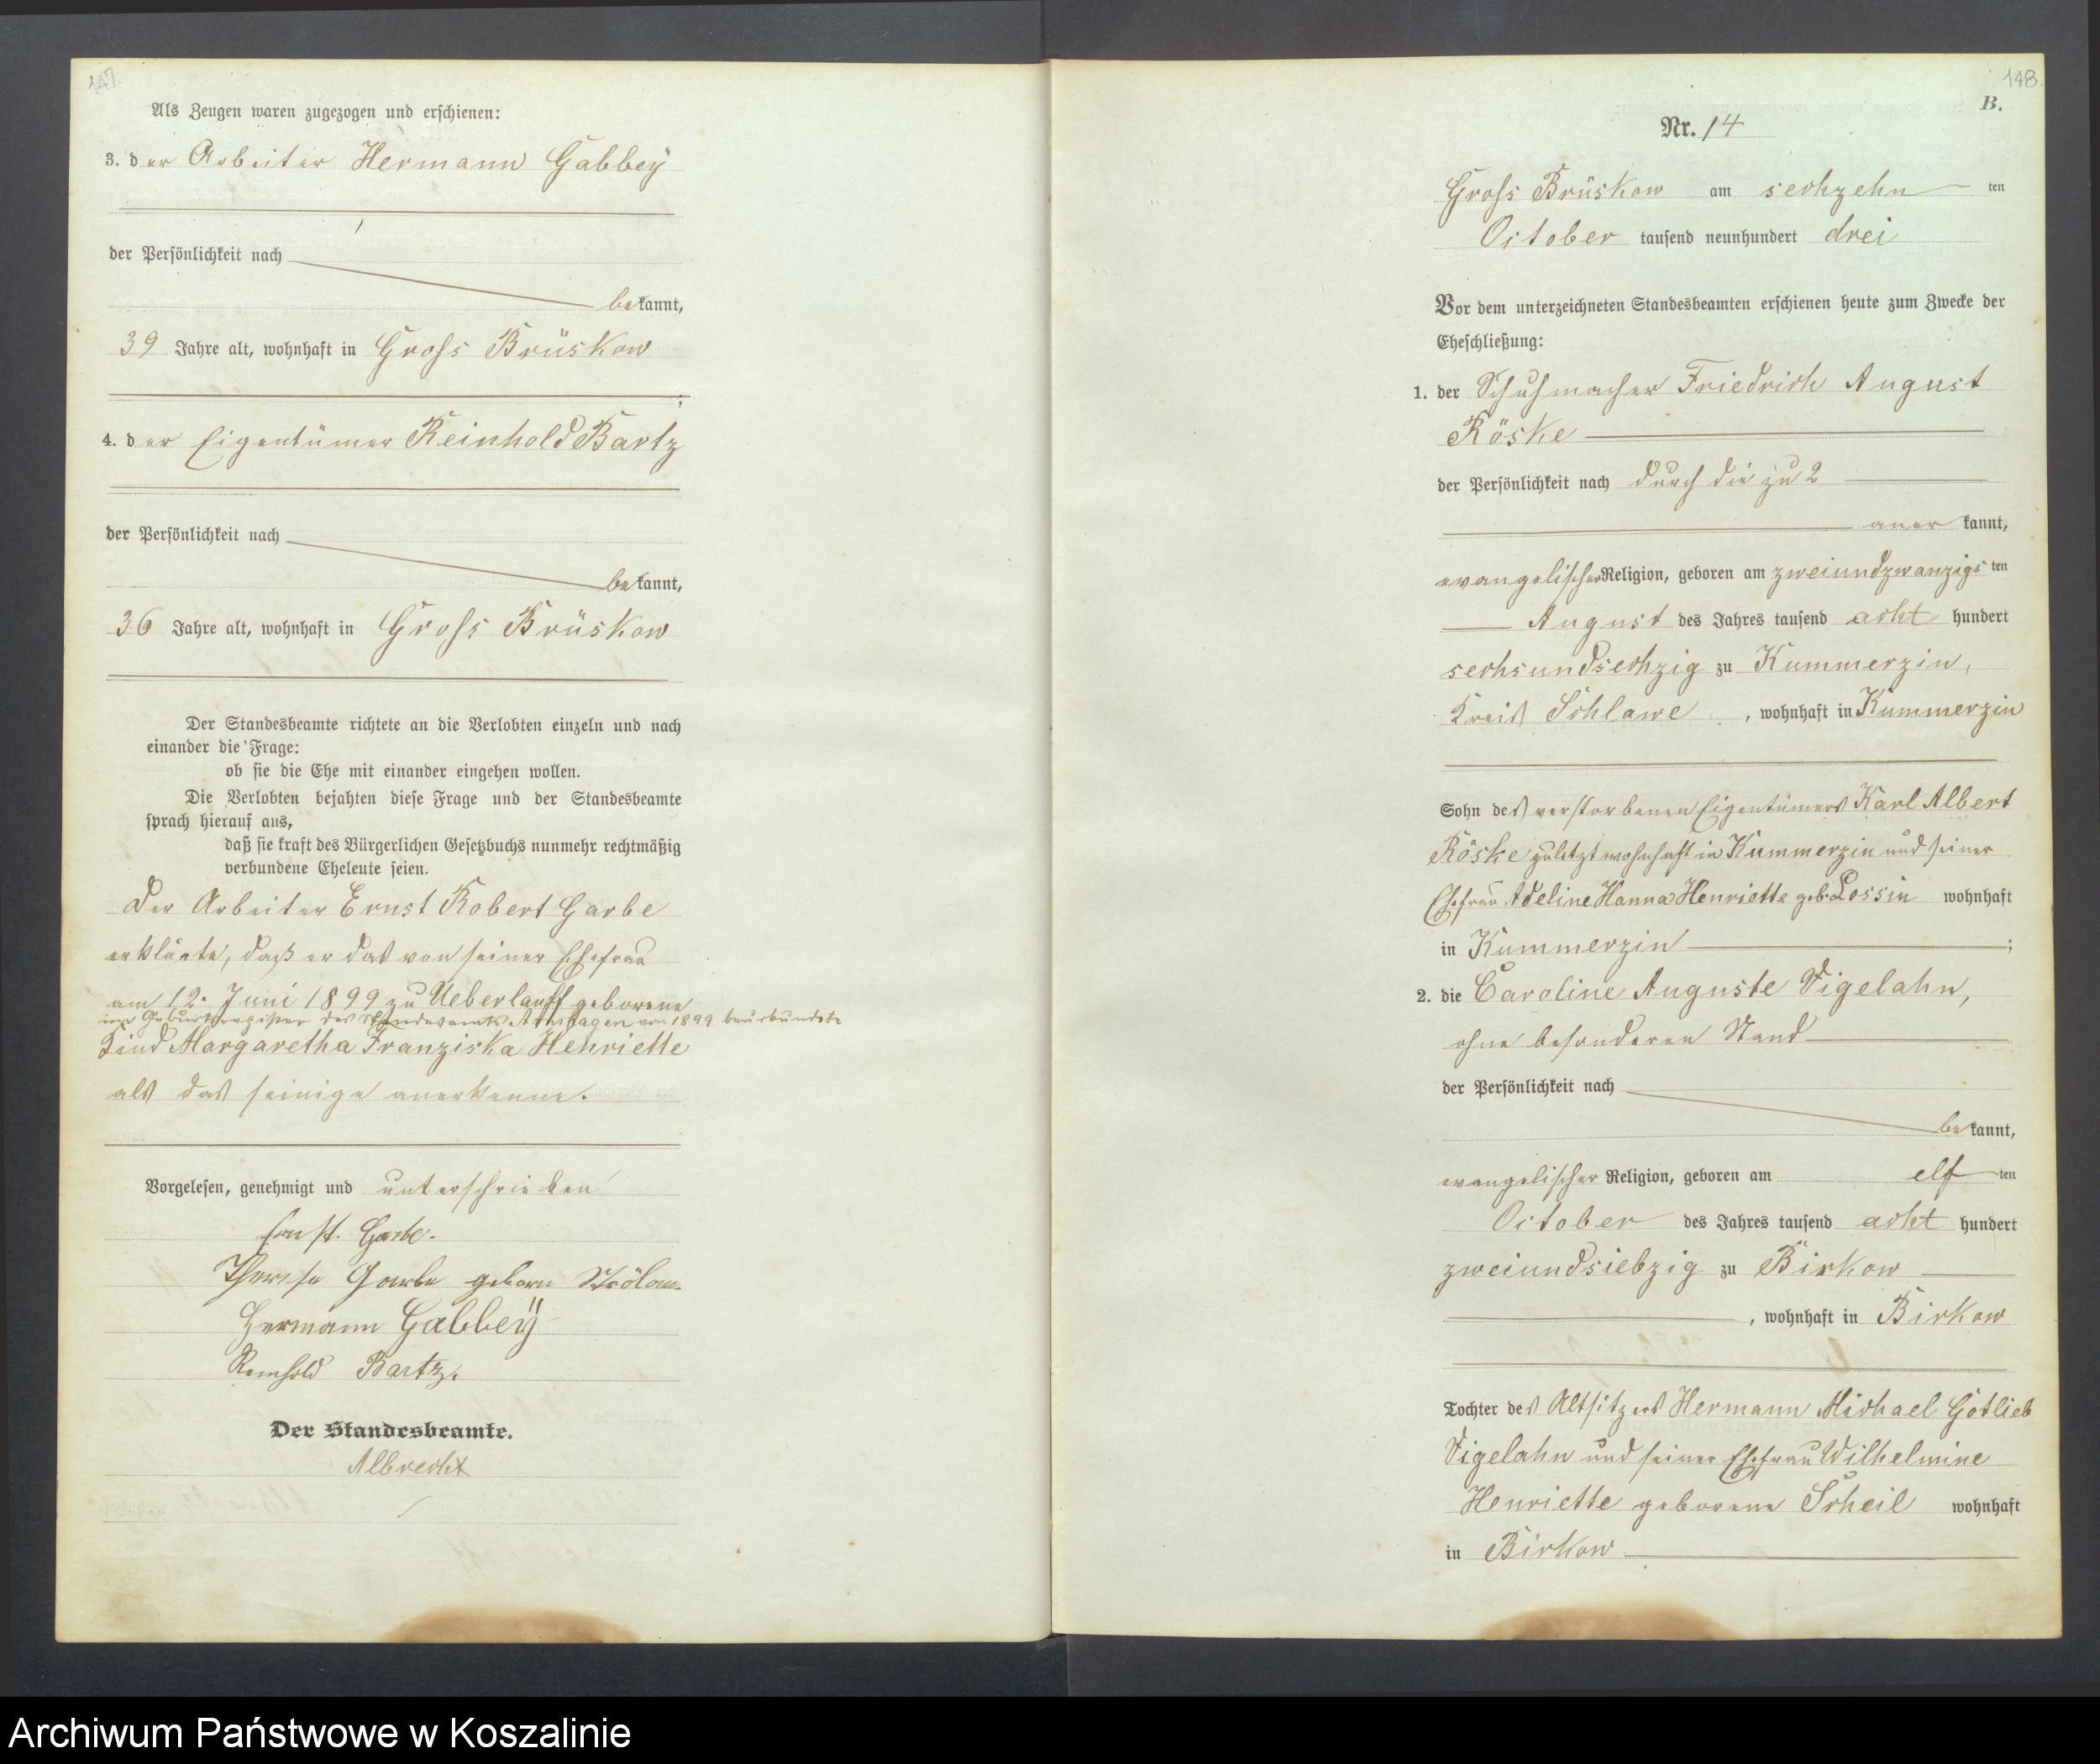 147.
Als Zeugen waren zugezogen und erschienen:
3. der Arbeiter Hermann Gabbey
der Persönlichkeit nach
bekannt,
39 Jahre alt, wohnhaft in Gross Brüskow
;
4. der Eigentümer Reinhold Bartz
der Persönlichkeit nach
bekannt,
36 Jahre alt, wohnhaft in Gross Brüskow
Der Standesbeamte richtete an die Verlobten einzeln und nach
einander die Frage:
ob sie die Ehe mit einander eingehen wollen.
Die Verlobten bejahten diese Frage und der Standesbeamte
sprach hierauf aus,
daß sie kraft des Bürgerlichen Gesetzbuchs nunmehr rechtmäßig
verbundene Eheleute seien.
Der Arbeiter Ernst Robert Garbe
erklärte, daß er das von seiner Ehefrau
am 12. Juni 1899 zu Ueberlauff geborene
im Geburtsregister des Standesamts von 1899 beurkundete
Kind Margaretha Franziska Henriette
als das seinige anerkenne.
Vorgelesen, genehmigt und unterschrieben
Ernst Garbe.
Therese Garbe geborene
Hermann Gabbeÿ
Reinhold Bartz.
Der Standesbeamte.
Albrecht
148.
B.
Nr. 14
Gross Brüskow am sechzehnten
October tausend neunhundert drei
Vor dem unterzeichneten Standesbeamten erschienen heute zum Zwecke der
Eheschließung:
1. der Schuhmacher Friedrich August
Röske
der Persönlichkeit nach durch die zu 2
anerkannt,
evangelischer Religion, geboren am zweiundzwanzigsten
August des Jahres tausend achthundert
sechsundsechzig zu Kummerzin,
Kreis Schlawe, wohnhaft in Kummerzin
Sohn des verstorbenen Eigentümers Karl Albert
Röske zuletzt wohnhaft in Kummerzin und seiner
Ehefrau Adeline Hanna Henriette geb. Lossin wohnhaft
in Kummerzin ;
2. die Caroline Auguste Vigelahn,
ohne besonderen Stand
der Persönlichkeit nach
bekannt,
evangelischer Religion, geboren am elften
October des Jahres tausend achthundert
zweiundsiebzig zu Birkow
, wohnhaft in Birkow
Tochter des Altsitzers Hermann Michael Gotlieb
Vigelahn und seiner Ehefrau Wilhelmine
Henriette geborene Scheil wohnhaft
in Birkow
Archiwum Państwowe w Koszalinie